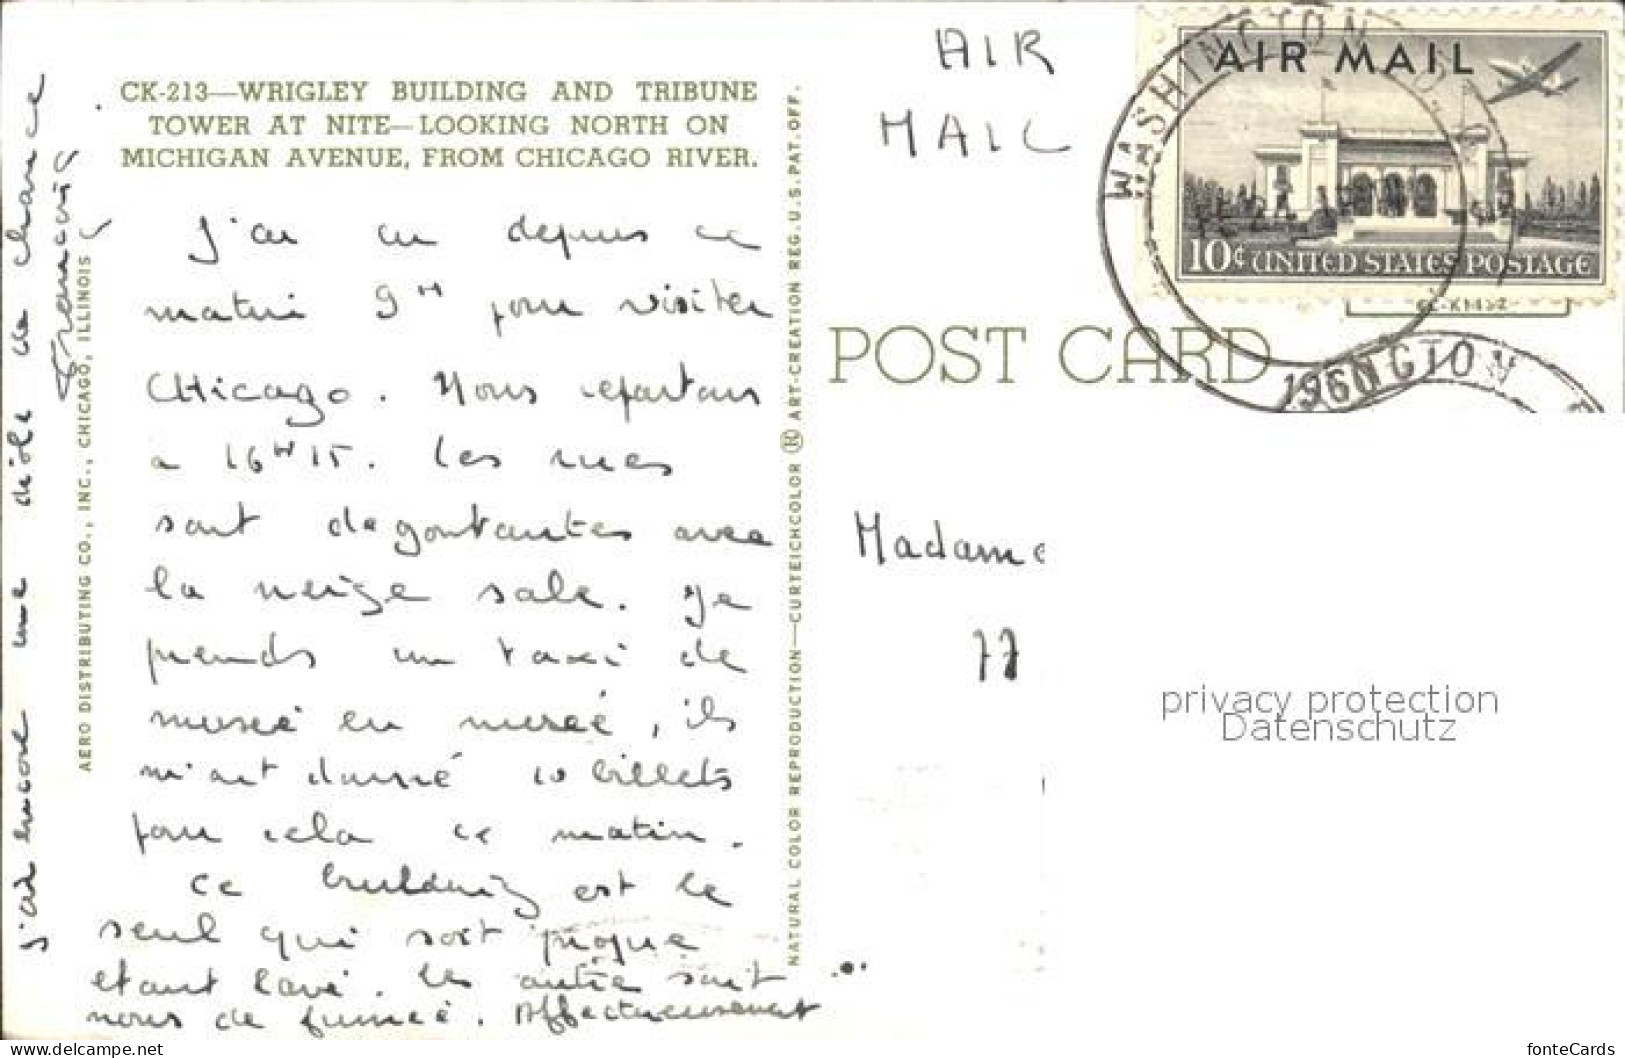 CK-213—WRIGLEY BUILDING AND TRIBUNE
TOWER AT NITE—LOOKING NORTH ON
MICHIGAN AVENUE, FROM CHICAGO RIVER.
J'ai eu depuis ce
matin 9H pour visiter
CHicago. Nous repartons
a 16H15. Les rues
sont degoutantes avec
la neige sale. Je
prends un taxi de
museé en museé, ils
m'ont donné 10 billets
pour cela ce matin.
Ce building est le
seul qui soit propre
etant lavé. les autre sont
noirs de fumeé. Affectueusement
J'ai encore une drôle de chance
Francois
AERO DISTRIBUTING CO., INC., CHICAGO, ILLINOIS
NATURAL COLOR REPRODUCTION—CURTEICHCOLOR ® ART-CREATION REG. U.S. PAT. OFF.
AIR
MAIL
AIR MAIL
10¢ UNITED STATES POSTAGE
WASHINGTON
1960
INGTON
POST CARD
Madame
77
privacy protection
Datenschutz
www.delcampe.net
fonteCards